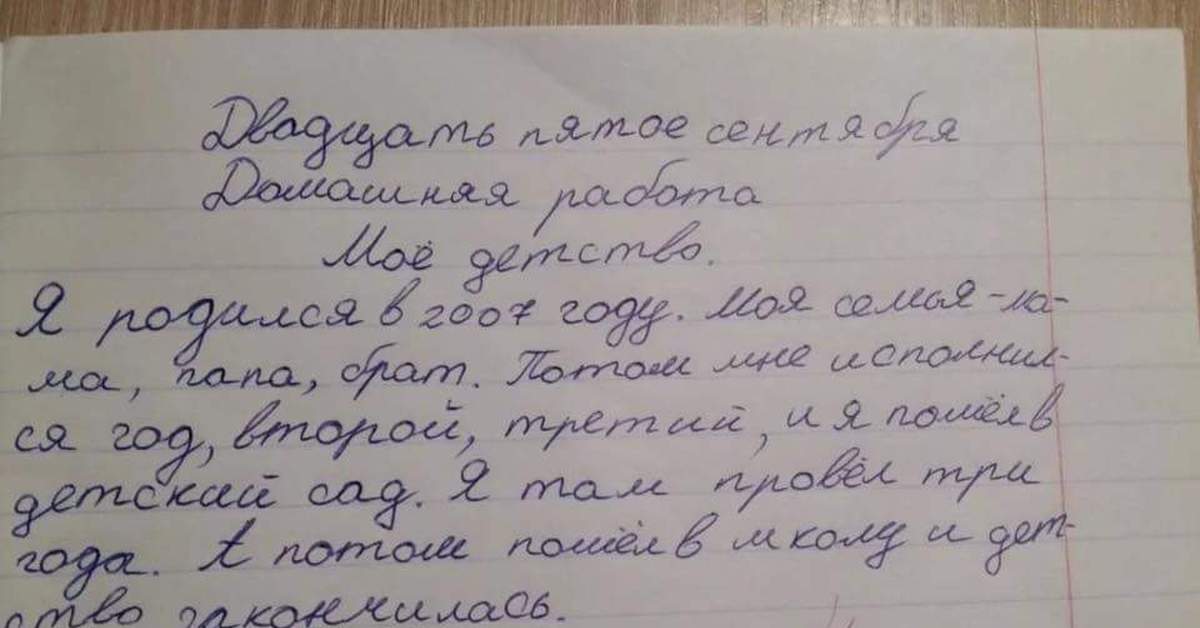 Двадцать пятое сентября
Домашняя работа
Моё детство.
Я родился в 2007 году. Моя семья - ма-
ма, папа, брат. Потом мне исполнил-
ся год, второй, третий, и я пошёл в
детский сад. Я там провёл три
года. А потом пошёл в школу и дет-
ство закончилась.